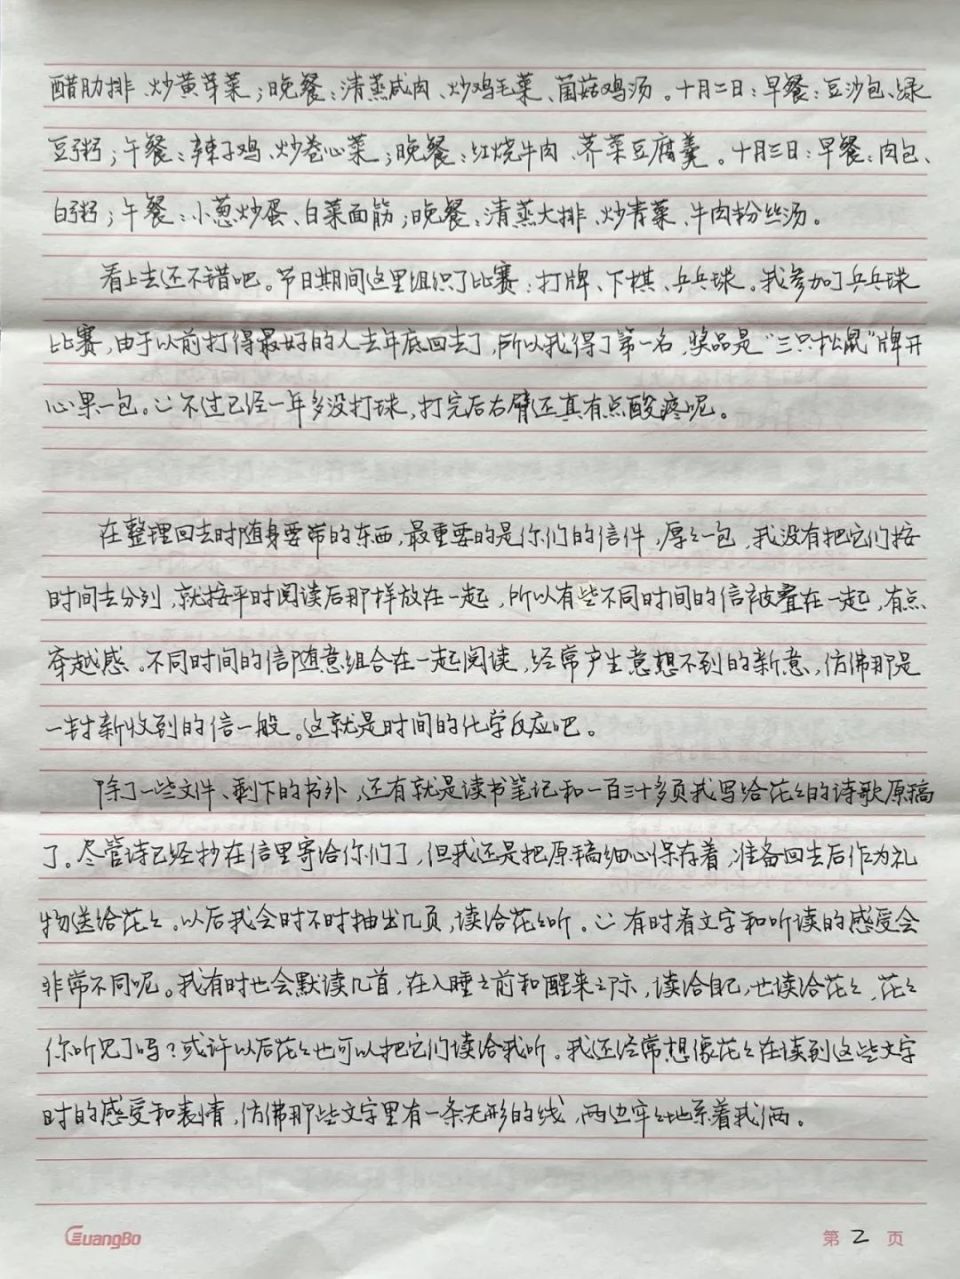 醋肋排、炒黄芽菜；晚餐：清蒸咸肉、炒鸡毛菜、菌菇鸡汤。十月二日：早餐：豆沙包、绿
豆粥；午餐：辣子鸡、炒卷心菜；晚餐：红烧牛肉、荠菜豆腐羹。十月三日：早餐：肉包、
白粥；午餐：小葱炒蛋、白菜面筋；晚餐：清蒸大排、炒青菜、牛肉粉丝汤。
看上去还不错吧。节日期间这里组织了比赛：打牌、下棋、乒乓球。我参加了乒乓球
比赛，由于以前打得最好的人去年底回去了，所以我得了第一名，奖品是“三只松鼠”牌开
心果一包。不过已经一年多没打球，打完后右臂还真有点酸疼呢。
在整理回去时随身要带的东西，最重要的是你们的信件，厚々一包，我没有把它们按
时间去分列，就按平时阅读后那样放在一起，所以有些不同时间的信被叠在一起，有点
穿越感。不同时间的信随意组合在一起阅读，经常产生意想不到的新意，仿佛那是
一封新收到的信一般。这就是时间的化学反应吧。
除了一些文件、剩下的书外，还有就是读书笔记和一百三十多页我写给花々的诗歌原稿
了。尽管诗已经抄在信里寄给你们了，但我还是把原稿细心保存着，准备回去后作为礼
物送给花々。以后我会时不时抽出几页，读给花々听。有时看文字和听读的感受会
非常不同呢。我有时也会默读几首，在入睡之前和醒来之际，读给自己，也读给花々，花々
你听见了吗？或许以后花々也可以把它们读给我听。我还经常想像花々在读到这些文字
时的感受和表情，仿佛那些文字里有一条无形的线，两边牢々地系着我俩。
GuangBo
第 2 页